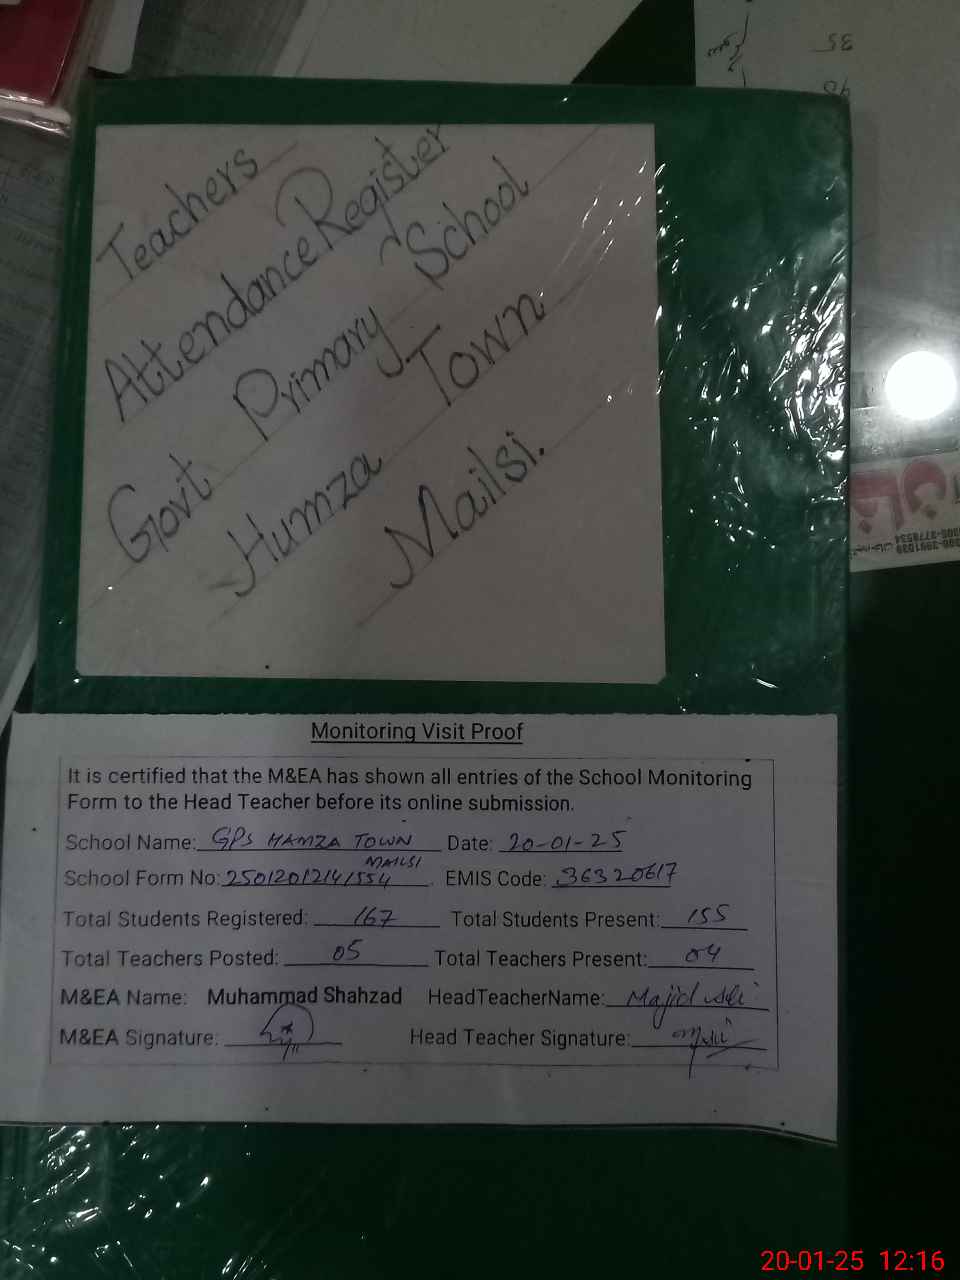 Teachers
Attendance Register
Govt Primary School
Humza Town
Mailsi.
Monitoring Visit Proof
It is certified that the M&EA has shown all entries of the School Monitoring
Form to the Head Teacher before its online submission.
School Name: GPS HAMZA TOWN Date: 20-01-25
MAILSI
School Form No: 25012012141554 EMIS Code: 36320617
Total Students Registered: 167 Total Students Present: 155
Total Teachers Posted: 05 Total Teachers Present: 04
M&EA Name: Muhammad Shahzad HeadTeacherName: Majid Ali
M&EA Signature: Head Teacher Signature:
35
خان
20-01-25 12:16